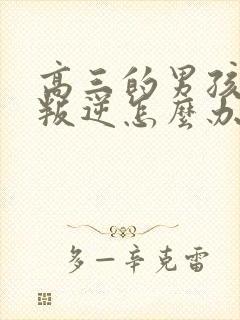 高三的男孩
叛逆怎麼办
多—辛克雷